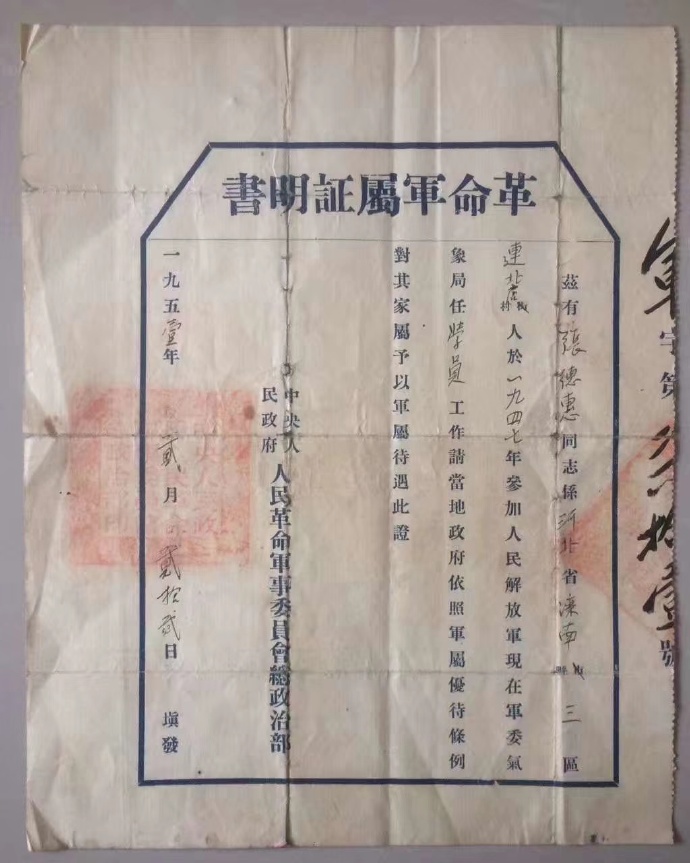 革命軍屬証明書
茲有張德惠同志係河北省灤南縣三區
連北店村人於一九四七年參加人民解放軍現在軍委氣
象局任學員工作請當地政府依照軍屬優待條例
對其家屬予以軍屬待遇此證
中央人民政府人民革命軍事委員會總政治部
一九五壹年貳月貳拾貳日填發
軍字第拾壹號